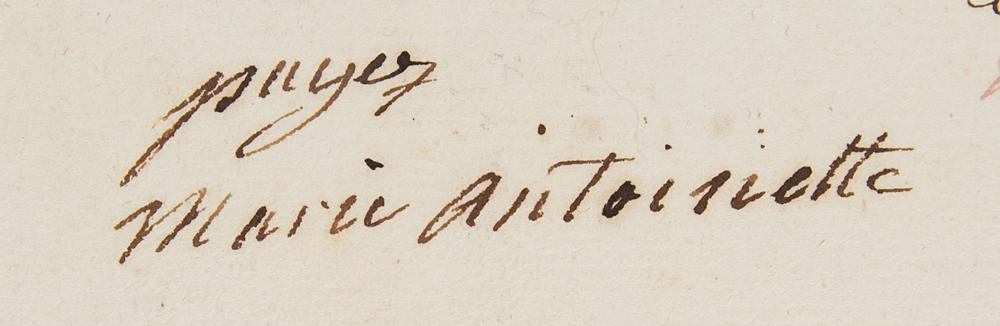 payez
Marie Antoinette